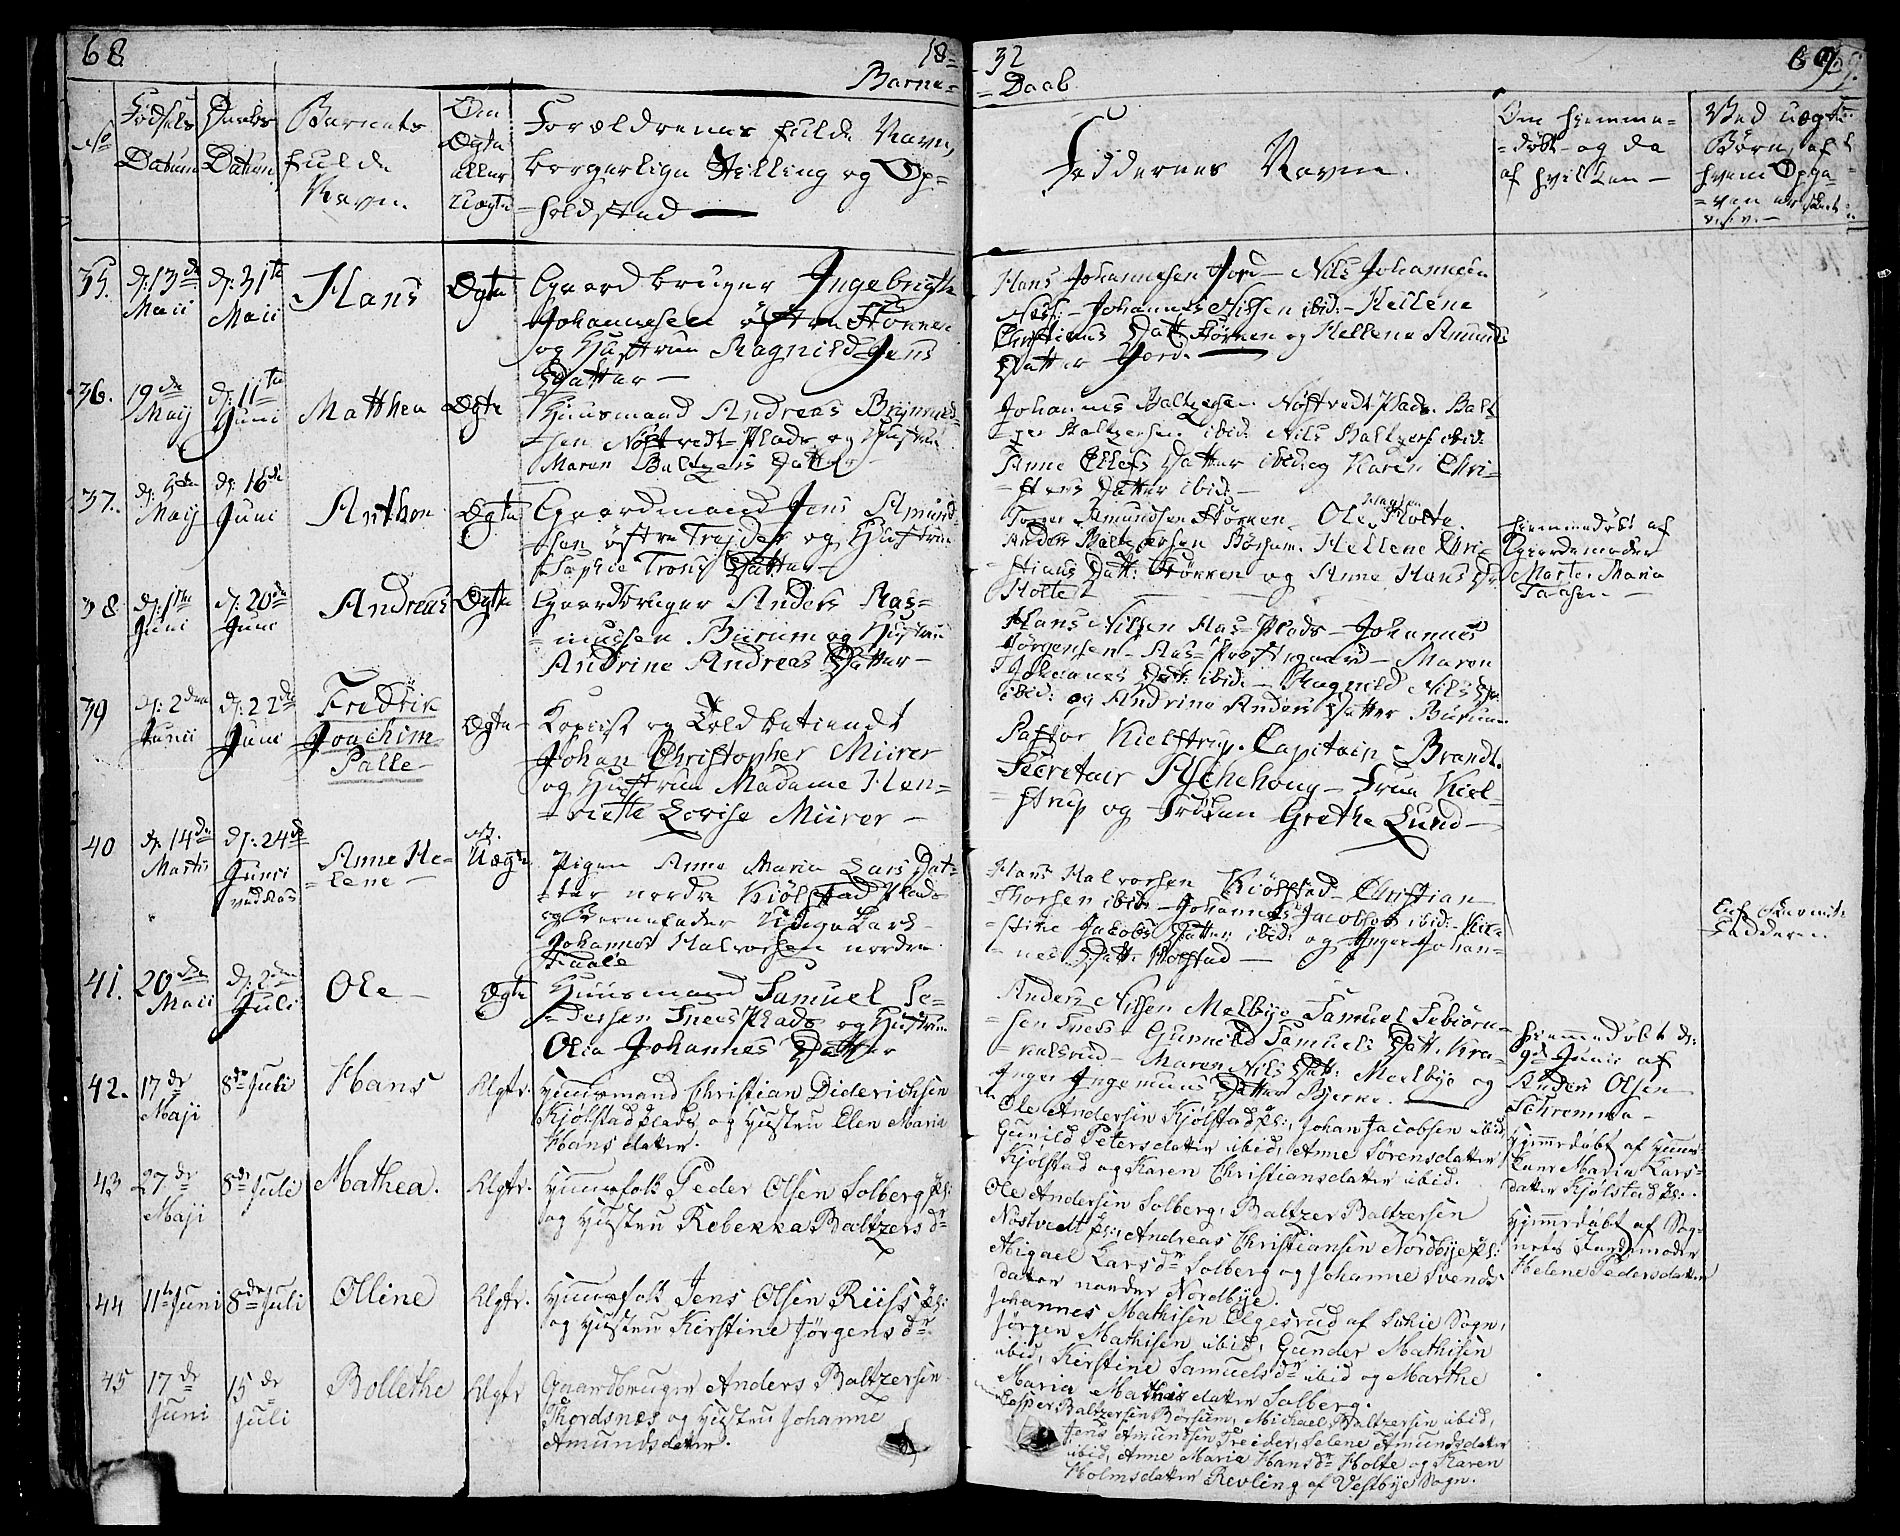 68
18=
Barne=
32
=Daab
69
No
Fødsels
Datum
Daabs
Datum
Barnets
fulde
Navn.
Om
Ægte
eller
Uægte
Forældrenes fulde Navn,
borgerlige Stilling og Op=
=holdsted
Faddernes Navne.
Om hjemme=
=døbt og da
af hvilken
Ved uægte
Børn, af
hvem Opga=
=ven er skeet
35.
d: 13de
Maii
d: 31te
Maii
Hans
Ægte
Gaardbruger Ingebrigt
Johannesen østre Støkken
og Hustrue Ragnild Jens
Datter
Hans Johannesen Hord Nils Johannesen
Johannes Nilsen ibid: Hellene
Christians Datt Støkken og Hellene Amunds
Datter Hord.
36.
19de
Maij
d: 11te
Juni
Matthea
Ægte
Huusmand Andreas Brynild
=sen Nøstvedt Plads og Hustrue
Maren Baltzers Datter
Johannes Baltzersen Nøstvedt Plads. Balt
=zer Baltzersen ibid: Nils Baltzers ibid:
Anne Ellefs Datter ibid og Karen Chri=
=stens Datter ibid:
37.
Maij
d: 16de
Juni
Anthon
Ægte
Gaardmand Jens Amund=
=sen østre Trejder og Hustrue
Sophie Trons Datter
Amundsen Støkken Ole Hansen Holte.
Anders Baltzersen Børsum. Hellene Chri=
=stians Datt: Støkken og Anne Hans Dr
Holte
hjemmedøbt af
Gjordemoder
Marte Maria
38
d: 1ste
Juni
d: 20de
Juni
Andreas
Ægte
Gaardbruger Anders Ras=
=mussen Burum og Hustrue
Andrine Andreas Datter
Hans Nilsen Aas Plads Johannes
Jørgensen Aas Præstegaard Maren
Johannes Datt: ibid: Ragnild Nils Dr
ibid: og Andrine Anders Datter Burum
39
d: 2den
Junii
d: 22de
Juni
Fredrik
Joachim
Palle
Ægte
Kopiist og Toldbetiendt
Johan Christopher Mürer
og Hustrue Madame Hen=
=riette Lovise Mürer
Pastor Kielstrup. Capitain Brandt.
Secretair Aschehoug Frue Kiel=
=strup og Frøken Grethe Lund
40
d: 14de
Martii
d: 24de
Juni
ved Aas
Anne He=
=lene
NB.
Uægte
Pigen Anne Maria Lars Dat=
=ter nordre Kiølstad Plads
og Barnefader Ungkarl
Johannes Halvorsen nordre
Hans Halvorsen Kiølstad Christian
Thorsen ibid Johannes Jacobsen ibid: Kir
=stine Jacobs Datter ibid: og Inger Johan=
=nes Datt: Kiølstad
Fadderen
41.
20de
Maii
d: 2den
Juli
Ole
Ægte
Huusmand Samuel Pe=
=dersen Snees Plads og Hustrue
Olia Johannes Datter
Anders Nilsen Melbye Samuel Tebiørn=
=sen Snees Gunnild Samuels Datt: Kra=
=kelsrud Maren Nils Datt: Melbye og
Inger Ingemuns Datter Bjerke.
hjemmedøbt d:
9de Junii af
Anders Olsen
42.
17de
Maji
8de Juli
Hans
Ægte.
Huusmand Christian Diderichsen
Kjølstad Plads og Hustru Elen Maria
Hansdatter.
Ole Andersen Kjølstad Pl:, Johan Jacobsen ibid,
Gunild Petersdatter ibid, Anne Sørensdatter
Kjølstad og Karen Christiansdatter ibid.
Hjemmedøbt af Huus
Maria Lars=
datter Kjølstad Pl:
43
27de
Maji
8de Juli
Mathea.
Ægte.
Huusfolk Peder Olsen Solberg Pl:
og Hustru Rebekka Baltzersdr
Ole Andersen Solberg, Baltzer Baltzersen
Nøstvedt Pl:, Andreas Christiansen Nordbye Pl:
Abigael Larsdr Solberg og Johanne Svends
datter nordre Nordbye.
Hjemmedøbt af Sog=
nets Jordemoder
Helene Pedersdatter
44
11te Juni
8de Juli
Olline
Ægte.
Huusfolk Jens Olsen Riis Pl:
og Hustru Kirstine Jørgensdr
Johannes Mathisen Elgesrud af Sogn,
Jørgen Mathisen ibid, Gunder Mathisen
ibid, Kirstine Samuelsdr ibid og Marthe
Maria Mathisdatter Solberg.
45
17de
Juni
15de
Juli
Bollethe
Ægte
Gaardbruger Anders Baltzersen
Thordsnes og Hustru Johanne
Amundsdatter.
Jesper Baltzersen Børsum, Michael Baltzersen ibid,
Jens Amundsen Treider, Helene Amundsdatter
ibid, Anne Maria Hansdr Holte og Karen
Holmsdatter Revling af Vestbye Sogn.